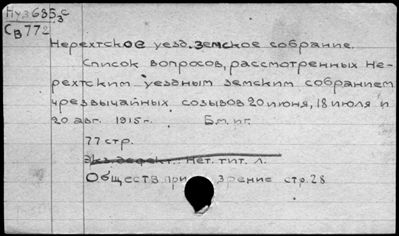 Пуз 635 3с
Св 772
Нерехтское уезд. земское собрание.
Список вопросов, рассмотренных Не-
рехтским уездным земским собранием
чрезвычайных созывов 20 июня, 18 июля и
20 авг. 1915 г. Б.м. и г.
77 стр.
Экз. дефект. Нет. тит. л.
Обществ. при зрение стр. 28